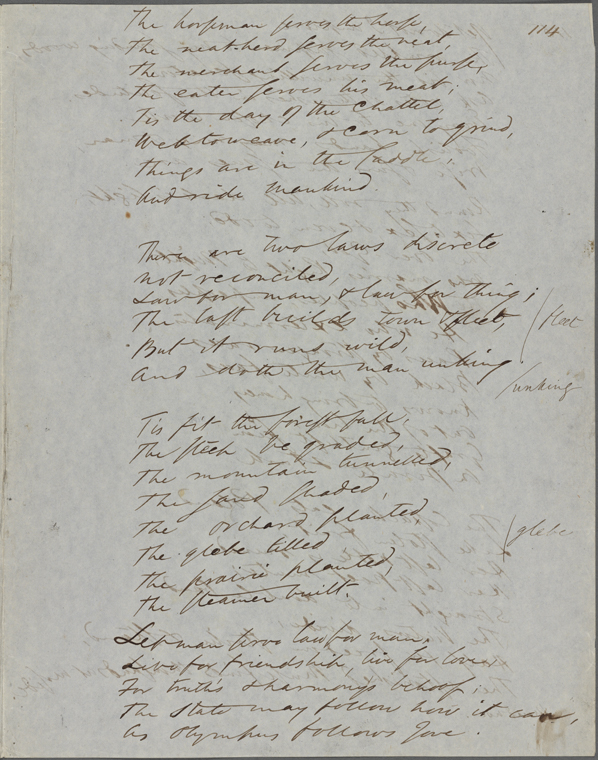 114
The horseman serves the horse,
The neatherd serves the neat,
The merchant serves the purse,
The eater serves his meat;
Tis the day of the chattel,
Web to weave, & corn to grind,
Things are in the saddle,
And ride mankind.
There are two laws discrete
Not reconciled,
Law for man, & law for thing;
The last builds town & fleet, / fleet
But it runs wild,
And doth the man unking. / unking
Tis fit the forest fall,
The steep be graded,
The mountain tunnelled,
The sand shaded,
The orchard planted
The glebe tilled / glebe
The prairie planted,
The steamer built.
Let man serve law for man,
Live for friendship, live for love,
For truth's & harmony's behoof;
The State may follow how it can,
As Olympus follows Jove.